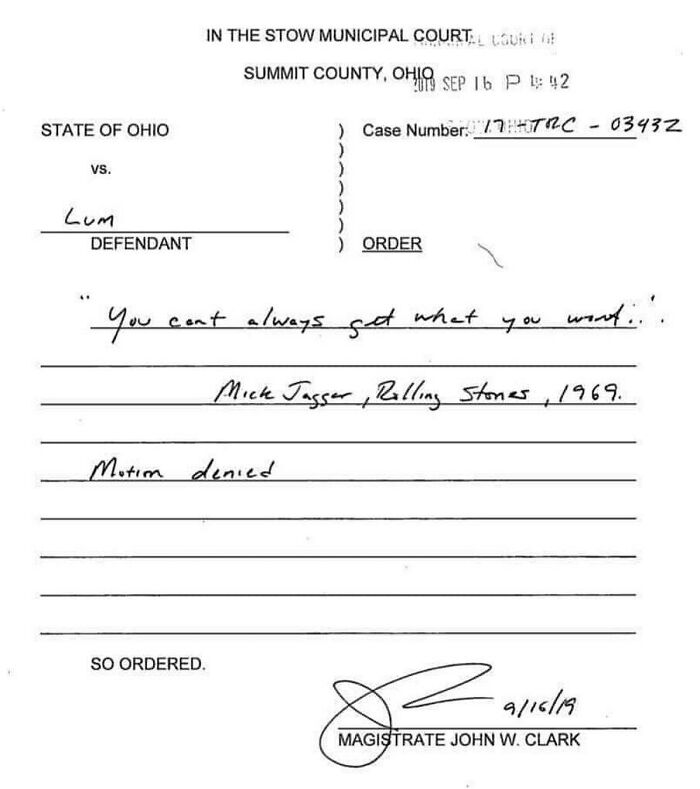 IN THE STOW MUNICIPAL COURT
COURT OF
SUMMIT COUNTY, OHIO
2019 SEP 16 P 4:42
STATE OF OHIO
vs.
Lum
DEFENDANT
Case Number: 17-TRC-03432
ORDER
"You can't always get what you want..".
Mick Jagger, Rolling Stones, 1969.
Motion denied
SO ORDERED.
9/16/19
MAGISTRATE JOHN W. CLARK